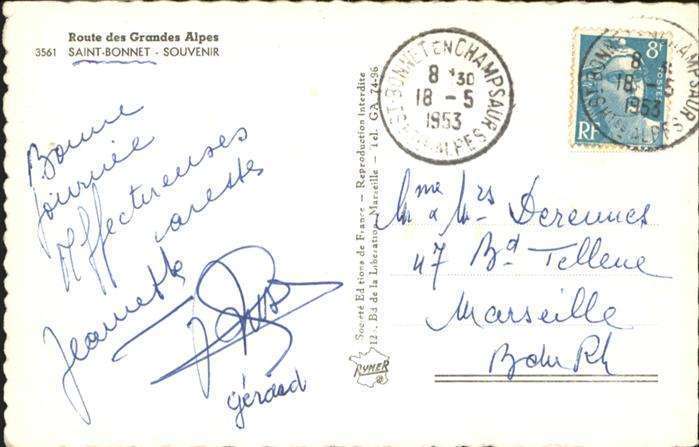 Route des Grandes Alpes
3561 SAINT-BONNET - SOUVENIR
Bonne
journée
Affectueuses
caresses
Jeannette
gérard
Société Editions de France - Reproduction Interdite
12, Bd de la Libération, Marseille - Tel. GA. 74-96
RYNER
ST-BONNET EN CHAMPSAUR
8 30
18 - 5
1953
HTES ALPES
8F
RF
8
18 - 5
1953
Mme & Mrs Derennes
47 Bd Tellene
Marseille
B du Rh